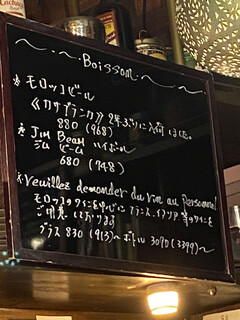 ～・～・Boisson・～・～
* モロッコビール
《カサブランカ》2年ぶりに入荷しました。
880 (968)
* JIM BEAM ハイボール
ジム ビーム
680 (748)
* veuillez demander du vin au personnel
モロッコワインを中心にフランス、イタリア、等のワインを
ご用意しております
グラス 830 (913)～ ボトル 3090 (3399)～